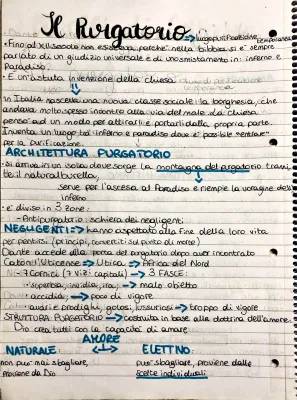 Il Purgatorio → luogo purificazione temporanea
• Fino al XII secolo non esisteva, perché nella bibbia si è sempre
parlato di un giudizio universale e di uno smistamento in: inferno e
Paradiso
• È un'astuta invenzione della chiesa
in Italia nasce una nuova classe sociale: la borghesia, che
andava molto spesso incontro alla via del male. La chiesa
pensò ad un modo per attirarli e portarli dalla propria parte.
Inventa un luogo tra inferno e paradiso dove è possibile "sentirsi"
per la purificazione.
ARCHITETTURA PURGATORIO
• si arriva in un'isola dove sorge la montagna del purgatorio tramite
il natural burella,
serve per l'ascesa al Paradiso e riempie la voragine dell'
inferno
• è diviso in 3 zone:
- Antipurgatorio: schiera dei negligenti
NEGLIGENTI: → hanno aspettato alla fine della loro vita
per pentirsi (principi, convertiti sul punto di morte)
Dante accede alla porta del purgatorio dopo aver incontrato
Catone l'Uticense → Utica → Africa del Nord
- 7 Cornici (7 Vizi capitali) → 3 FASCE:
• superbia, invidia, ira → malo obietto
• accidia → poco di vigore
• avari e prodighi, golosi, lussuriosi → troppo di vigore
STRUTTURA PURGATORIO → costruita in base alla dottrina dell'amore.
Dio crea tutti con la capacità di amare
AMORE
NATURALE ← → ELETTIVO:
non può mai sbagliare, può sbagliare, proviene dalle
proviene da Dio scelte individuali